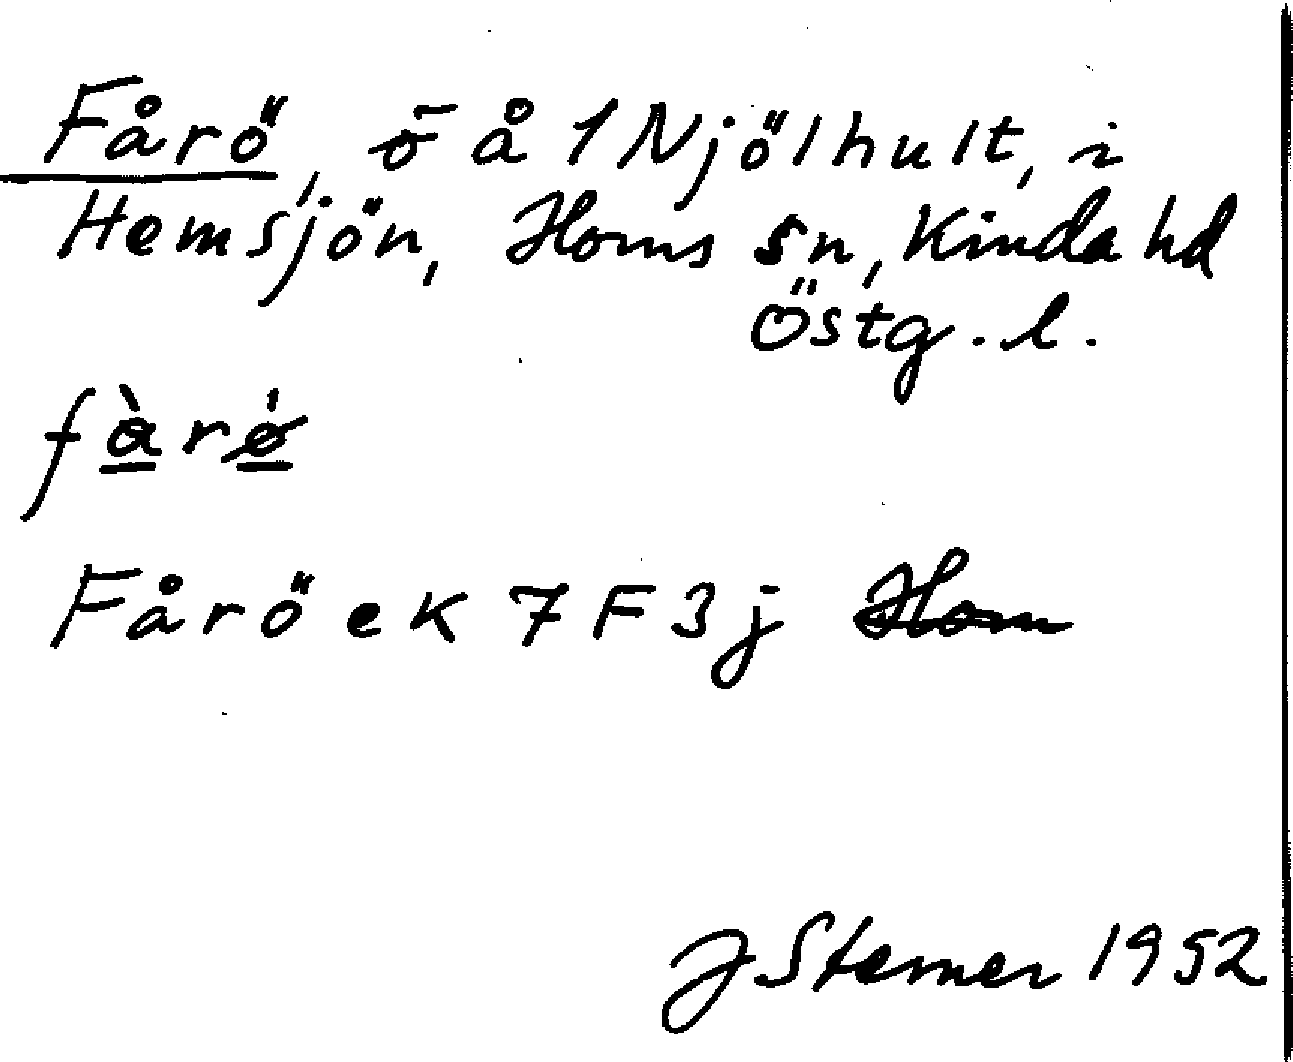 Fårö, ö å 1 Njölhult, i
Hemsjön, Horns sn, Kinda hd
Östg. l.
fàrø̀
Fårö ek 7 F 3 j Horn
J Sterner 1952